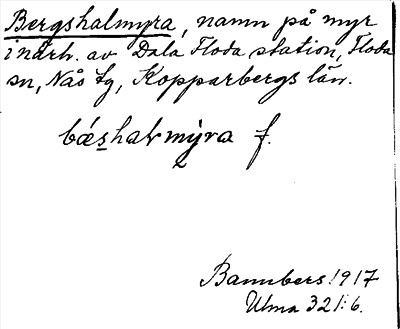 Bergshalmyra, namn på myr
i närh. av Dala Floda station, Floda
sn, Nås tg, Kopparbergs län.
bǽshalmýra f.
Bannbers 1917
Ulma 321:6.